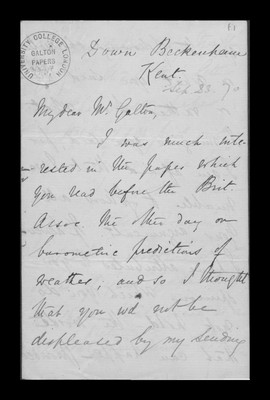 UNIVERSITY COLLEGE LONDON
GALTON
PAPERS
Down Beckenham
Kent.
Sep 23. 70
My dear Mr Galton,
I was much inte-
rested in the paper which
you read before the Brit
Assoc the other day on
barometric predictions of
weather, and so I thought
that you wd not be
displeased by my sending